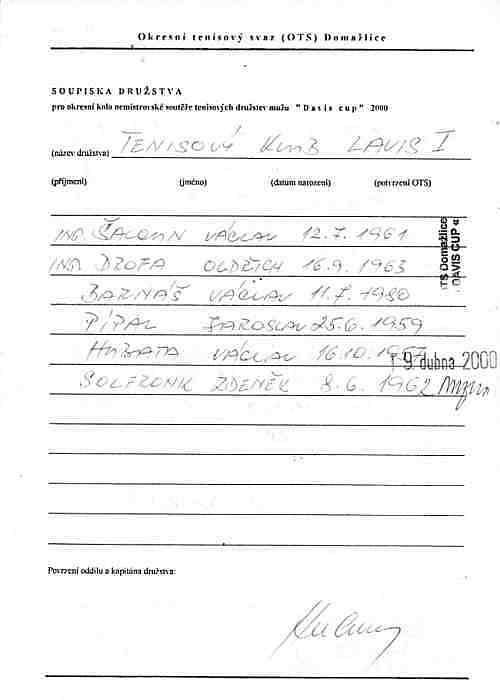 Okresní tenisový svaz (OTS) Domažlice
SOUPISKA DRUŽSTVA
pro okresní kolo nemistrovské soutěže tenisových družstev mužu "Davis cup" 2000
(název družstva) TENISOVÝ KLUB LAVIS I
(příjmení) (jméno) (datum narození) (potvrzení OTS)
ING. VÁCLAV 12.7. 1961
ING. DZOFA OLDŘICH 16.9. 1963
BARNÁŠ VÁCLAV 11.7. 1980
PÍPAL JAROSLAV 25.6. 1959
HUBATA VÁCLAV 16.10. 1957
ZDENĚK 8.6. 1962
TS Domažlice
DAVIS CUP
19. dubna 2000
Potvrzení oddílu a kapitána družstva: